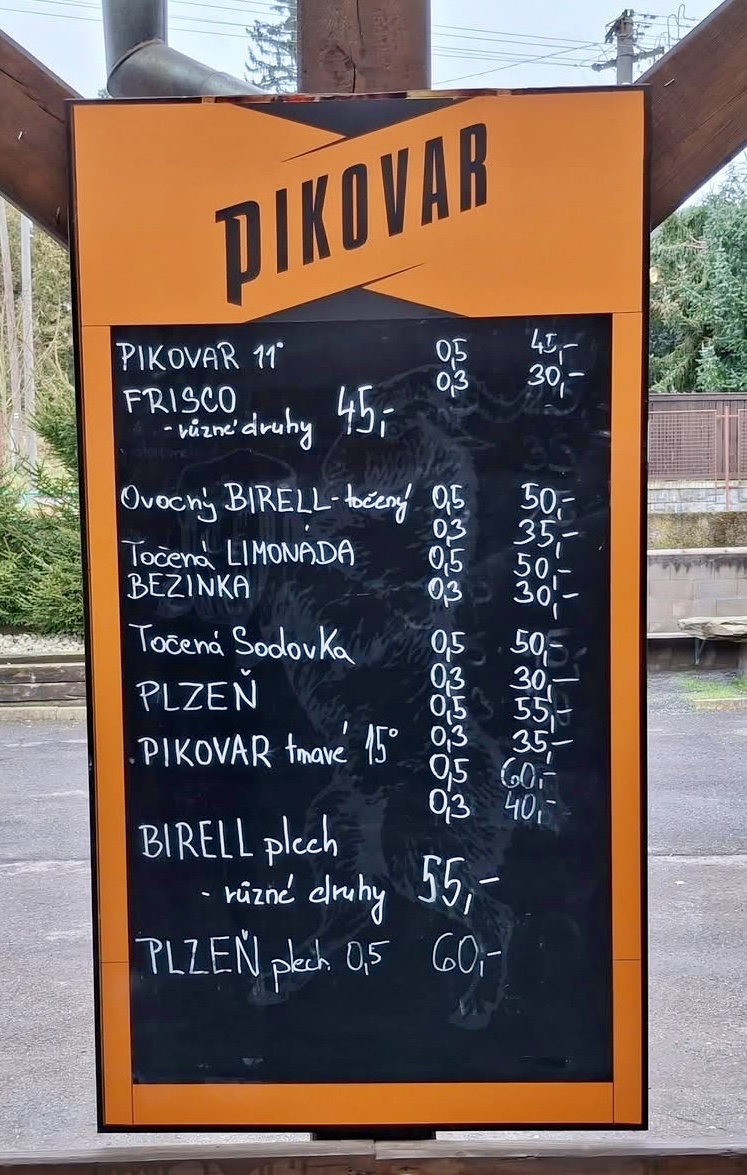 PIKOVAR
PIKOVAR 11° 0,5 45,-
0,3 30,-
FRISCO 45,-
- různé druhy
Ovocný BIRELL-točený 0,5 50,-
0,3 35,-
Točená LIMONÁDA 0,5 50,-
BEZINKA 0,3 30,-
Točená SodovKa 0,5 50,-
0,3 30,-
PLZEŇ 0,5 55,-
0,3 35,-
PIKOVAR tmavé 15° 0,5 60,-
0,3 40,-
BIRELL plech
- různé druhy 55,-
PLZEŇ plech 0,5 60,-